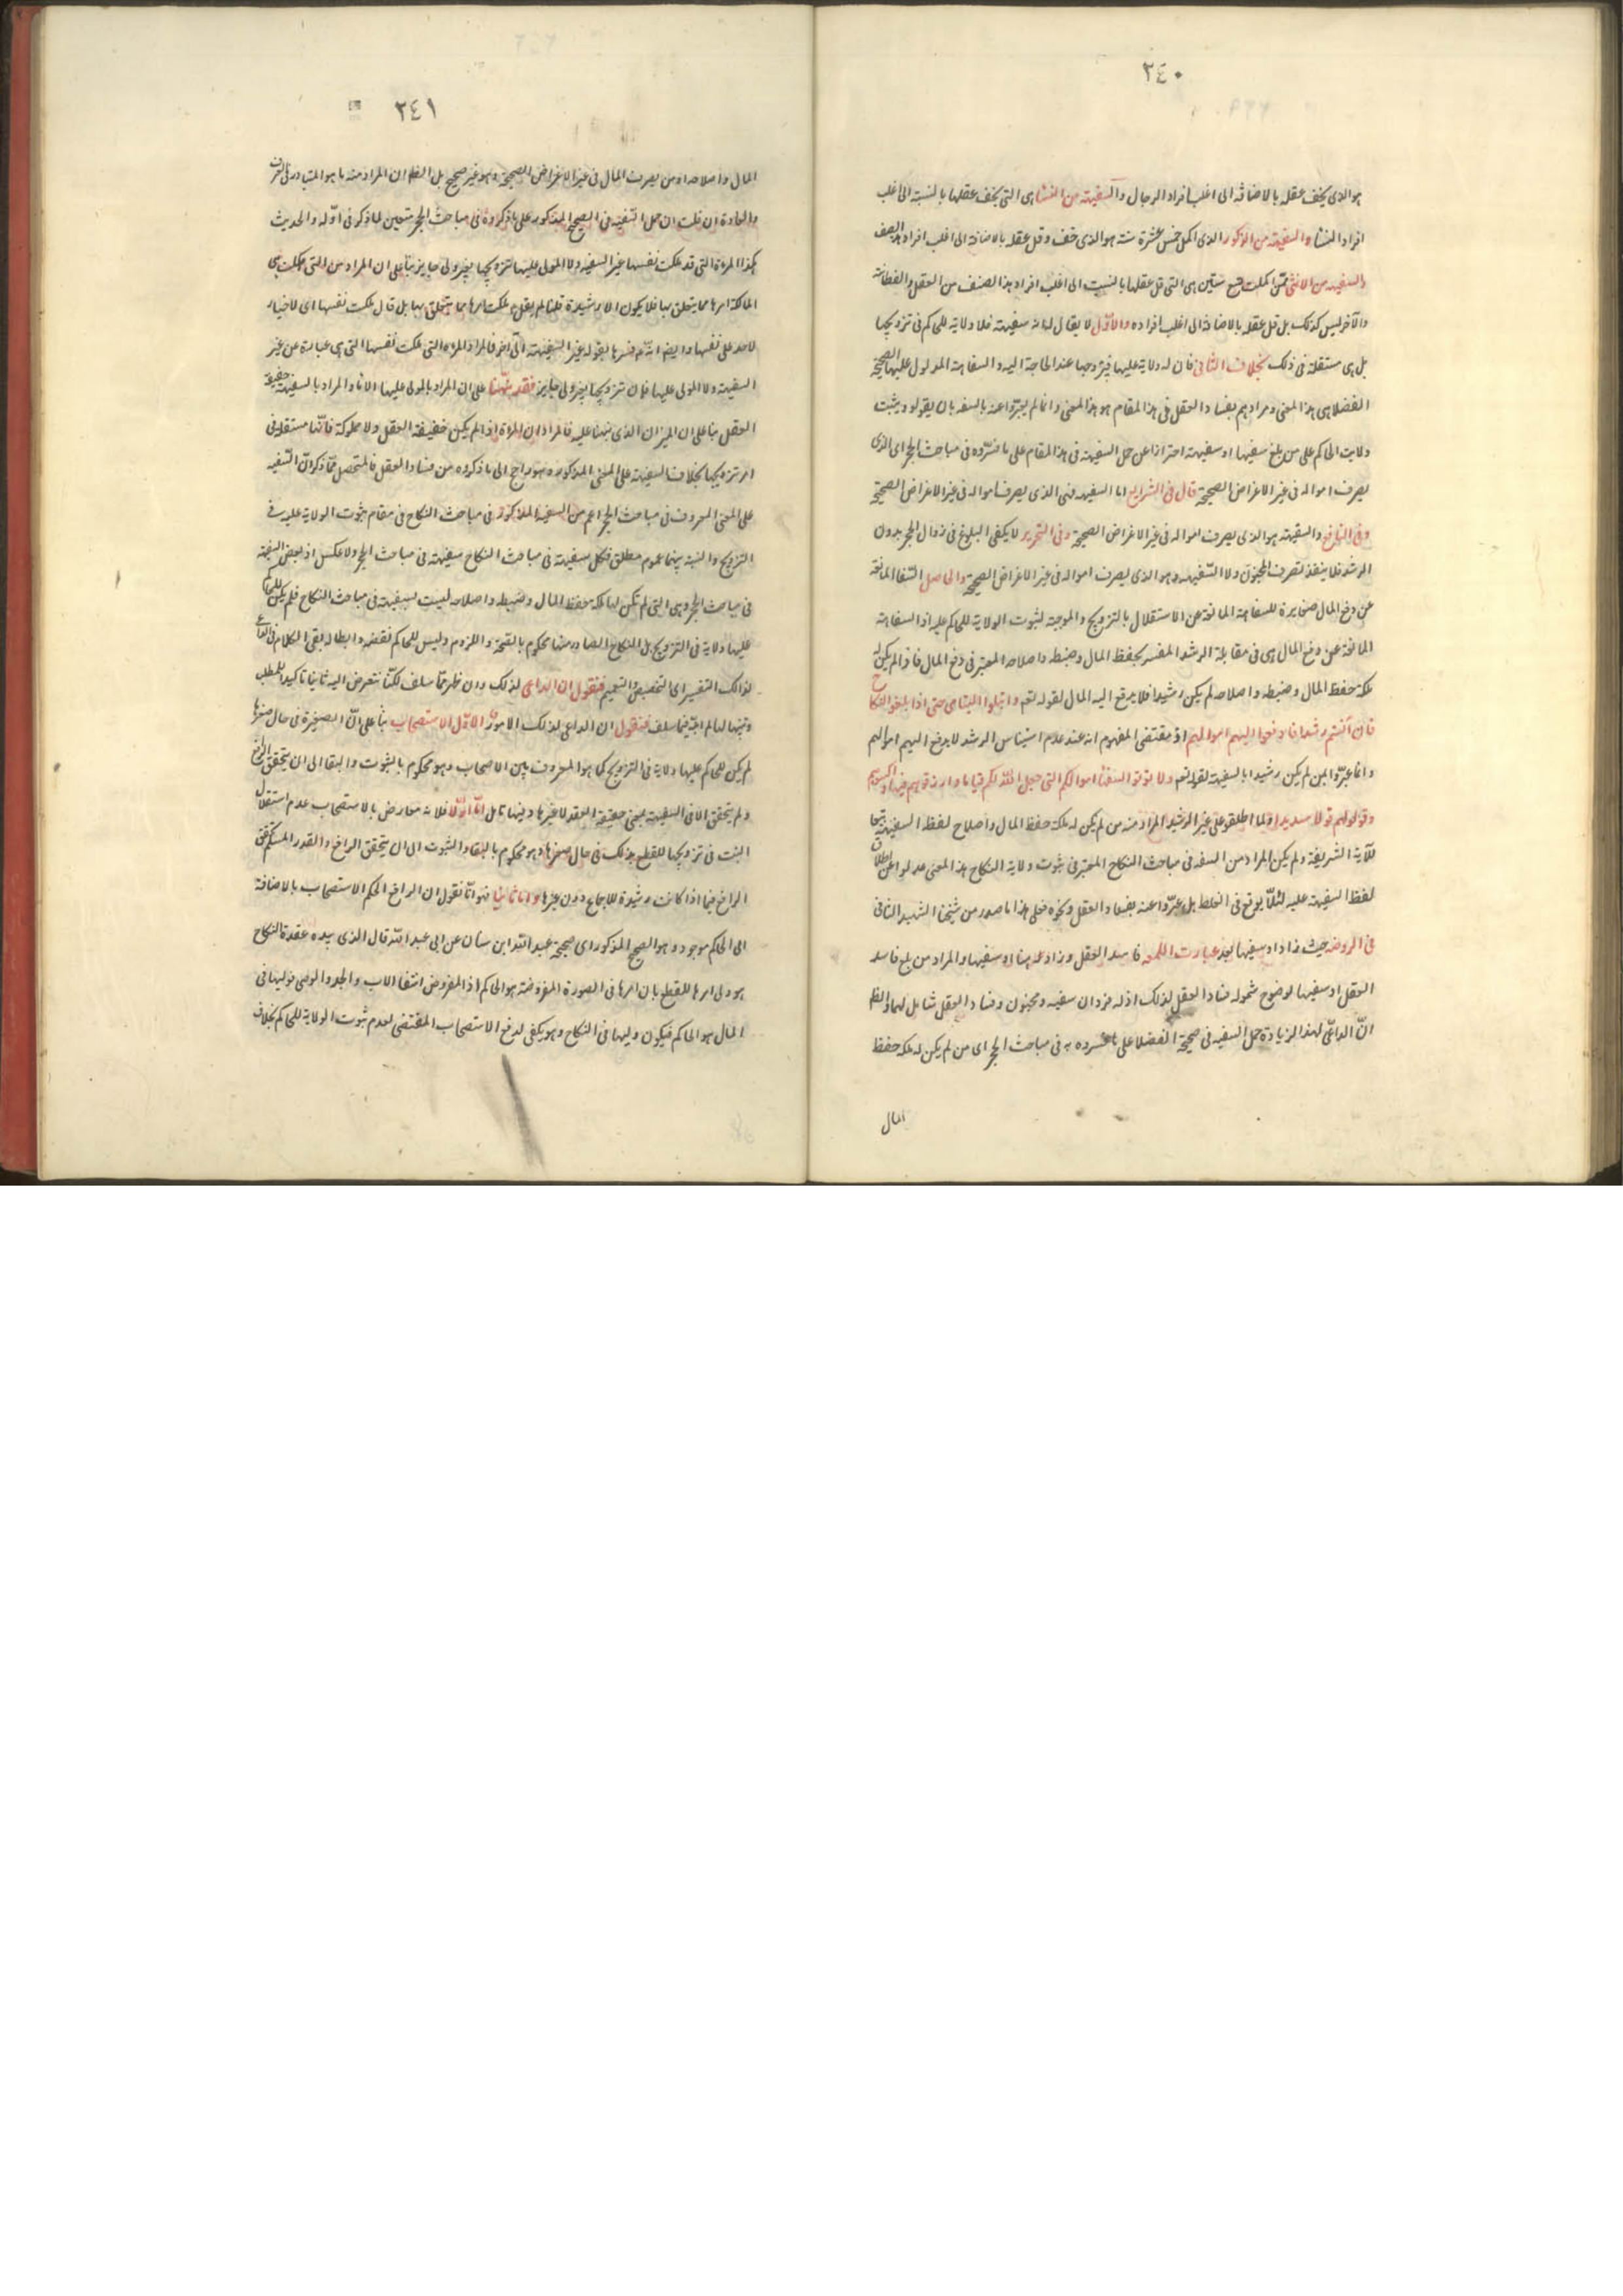 ٣٤٠
هو الذى يخف عقله بالاضافة الى اغلب افراد الرجال والسفيهة من النساء هى التى يخف عقلها بالنسبة الى اغلب
افراد النساء والسفيه من الذكور الذى اكمل خمس عشرة سنة هو الذى خف وقل عقله بالاضافة الى اغلب افراد هذا الصنف
والسفيه من الانثى ممن اكملت تسع سنين هى التى قل عقلها بالنسبت الى اغلب افراد هذا الصنف من العقل والفطانة
والآخر ليس كذلك بل قل عقله بالاضافة الى اغلب افراده والأول لا يقال لها انه سفيهة فلا ولاية للحاكم فى تزويجها
بل هى مستقلة فى ذلك بخلاف الثانى فان له ولاية عليها فيزوجها عند الحاجة اليه والسفاهة المدلول عليها الصحيحة
الفضلا هى هذا المعنى ومرادهم بفساد العقل فى هذا المقام هو هذا المعنى وانما لم يعبروا عنه بالسفه بان يقولو ويثبت
ولايت الحاكم على من بلغ سفيها او سفيهة احترازا عن حمل السفيهة فى هذا المقام على ما فسروه فى مباحث الحجر اى الذى
يصرف امواله فى غير الاغراض الصحيحة قال فى الشرايع اما السفيه فهى الذى يصرف امواله فى غير الاغراض الصحيحة
وفى النافع والسفيه هو الذى يصرف امواله فى غير الاغراض الصحيحة وفى التحرير لا يكفى البلوغ فى زوال الحجر بدون
الرشد فلا ينفذ تصرف المجنون ولا السفيه وهو الذى يصرف امواله فى غير الاغراض الصحيحة والحاصل السفاهة المانعة
عن دفع المال مغايرة للسفاهة المانعة عن الاستقلال بالتزويج والموجبة لثبوت الولاية للحاكم عليه اذ السفاهة
المانعة عن دفع المال هى فى مقابلة الرشد المفسر بحفظ المال وضبطه واصلاحه المعتبر فى دفع المال فاذا لم يكن له
ملكة حفظ المال وضبطه واصلاحه لم يكن رشيدا فلا يدفع اليه المال لقوله تعم وابتلوا اليتامى حتى اذا بلغوا النكاح
فان آنستم رشدا فادفعوا اليهم اموالهم اذ مقتضى المفهوم انه عند عدم استيناس الرشد لا يدفع اليهم اموالهم
وانما عبروا عمن لم يكن رشيدا بالسفيه لقوله تعم ولا تؤتوا السفهاء اموالكم التى جعل الله لكم قياما وارزقوهم فيها واكسوهم
وقولوا لهم قولا سديدا ولما اطلقو على غير الرشيد المراد منه من لم يكن له ملكة حفظ المال وأصلاح لفظ السفيه تبعا
للآية الشريفة ولم يكن المراد من السفه فى مباحث النكاح المعتبر فى ثبوت ولاية النكاح هذا المعنى عدلوا عن اطلاق
لفظ السفيه عليه لئلا يوقع فى الغلط بل عبروا عنه بفساد العقل ونحوه فعلى هذا ما صدر من شيخنا الشهيد الثانى
فى الروضة حيث زاد او سفيها بعد عبارت اللمعه فاسد العقل وزاد هنا او سفيها والمراد من بلغ فاسد
العقل او سفيها لوضوح شموله فساد العقل لذلك اذ له فردان سفيه ومجنون وفساد العقل شامل لهما والظ
ان الداعى لهذا الزيادة حمل السفيه فى صحيحة الفضلا على ما فسروه به فى مباحث الحجر اى من لم يكن له ملكة حفظ
المال
٣٤١
المال واصلاحه او من يصرف المال فى غير الاغراض الصحيحة وهو غير صحيح بل الظ ان المراد منه ما هو المتبادر فى العرف
والعادة ان قلت ان حمل السفيه فى الصحيح المذكور على ما ذكروه فى مباحث الحجر متعين لما ذكر فى اوله والحديث
هكذا المرءة التى قد ملكت نفسها غير السفيه ولا المولى عليها تزويجها بغير ولى جايز بناء على ان المراد من التى ملكت هى
المالكة امرها مما يتعلق بها فلا يكون الا رشيدة قلنا لم يقل ملكت امرها مما يتعلق بها بل قال ملكت نفسها اى لا خيار
لاحد على نفسها وايضا انه ع فسرها بقوله غير السفيهة الى آخر فالمراد المرءة التى ملكت نفسها التى هى عبارة عن غير
السفيهة ولا المولى عليها فان تزويجها بغير ولى جايز فقد نبهنا على ان المراد بالمولى عليها الاناء والمراد بالسفيهة خفيفة
العقل بنا على ان الميزان الذى نبهنا عليه فالمراد ان المرءة اذا لم يكن خفيفة العقل ولا مملوكة فانها مستقلة فى
امر تزويجها بخلاف السفيهة على المعنى المذكور وهو راجع الى ما ذكروه من فساد العقل فالمتحصل مما ذكر ان السفيه
على المعنى المعروف فى مباحث الحجر اعم من السفيه المذكور فى مباحث النكاح فى مقام ثبوت الولاية عليه فى
التزويج والنسبة بينهما عموم مطلق فكل سفيهة فى مباحث النكاح سفيهة فى مباحث الحجر ولا عكس اذ بعض السفيهة
فى مباحث الحجر وهى التى لم تكن لها ملكة حفظ المال وضبطه واصلاحه ليست لسفيهة فى مباحث النكاح فلم يكن للحاكم
عليها ولاية فى التزويج بل النكاح الصادر منها محكوم بالصحة واللزوم وليس للحاكم نقضه وابطاله بقى الكلام فى الداعى
لذلك التفسير اى التخصيص والتعميم فنقول ان الداعى لذلك وان ظهر مما سلف لكنا نتعرض اليه ثانيا تاكيدا للمطلب
وتنبيها لما لم انبه فيما سلف فنقول ان الداعى لذلك الامور الاول الاستصحاب بنا على ان الصغيرة فى حال صغرها
لم يكن للحاكم عليها ولاية فى التزويج كما هو المعروف بين الاصحاب وهو محكوم بالثبوت والبقا الى ان يتحقق الرافع
ولم يتحقق الا فى السفيهة بمعنى خفيفة العقد لا غيرها وفيها تامل اما اولا فلانه معارض بالاستصحاب عدم استقلال
البنت فى تزويجها للقطع بذلك فى حال صغرها وهو محكوم بالبقاء والثبوت الى ان يتحقق الرافع والقدر المسلم تحقق
الرافع فيما اذا كانت رشيدة للاجماع دون غيرها واما ثانيا فهو انا نقول ان الرافع الحكم الاستصحاب بالاضافة
الى الحاكم موجود وهو الصحيح المذكور اى صحيحة عبد الله ابن سنان عن ابى عبد الله قال الذى بيده عقدة النكاح
هو ولى امرها للقطع بان امرها فى الصورة المفروضة هو الحاكم اذ المفروض انتفا الاب والجد والوصى فوليها فى
المال هو الحاكم فيكون وليها فى النكاح وهو يكفى لدفع الاستصحاب المقتضى لعدم ثبوت الولاية للحاكم بخلاف